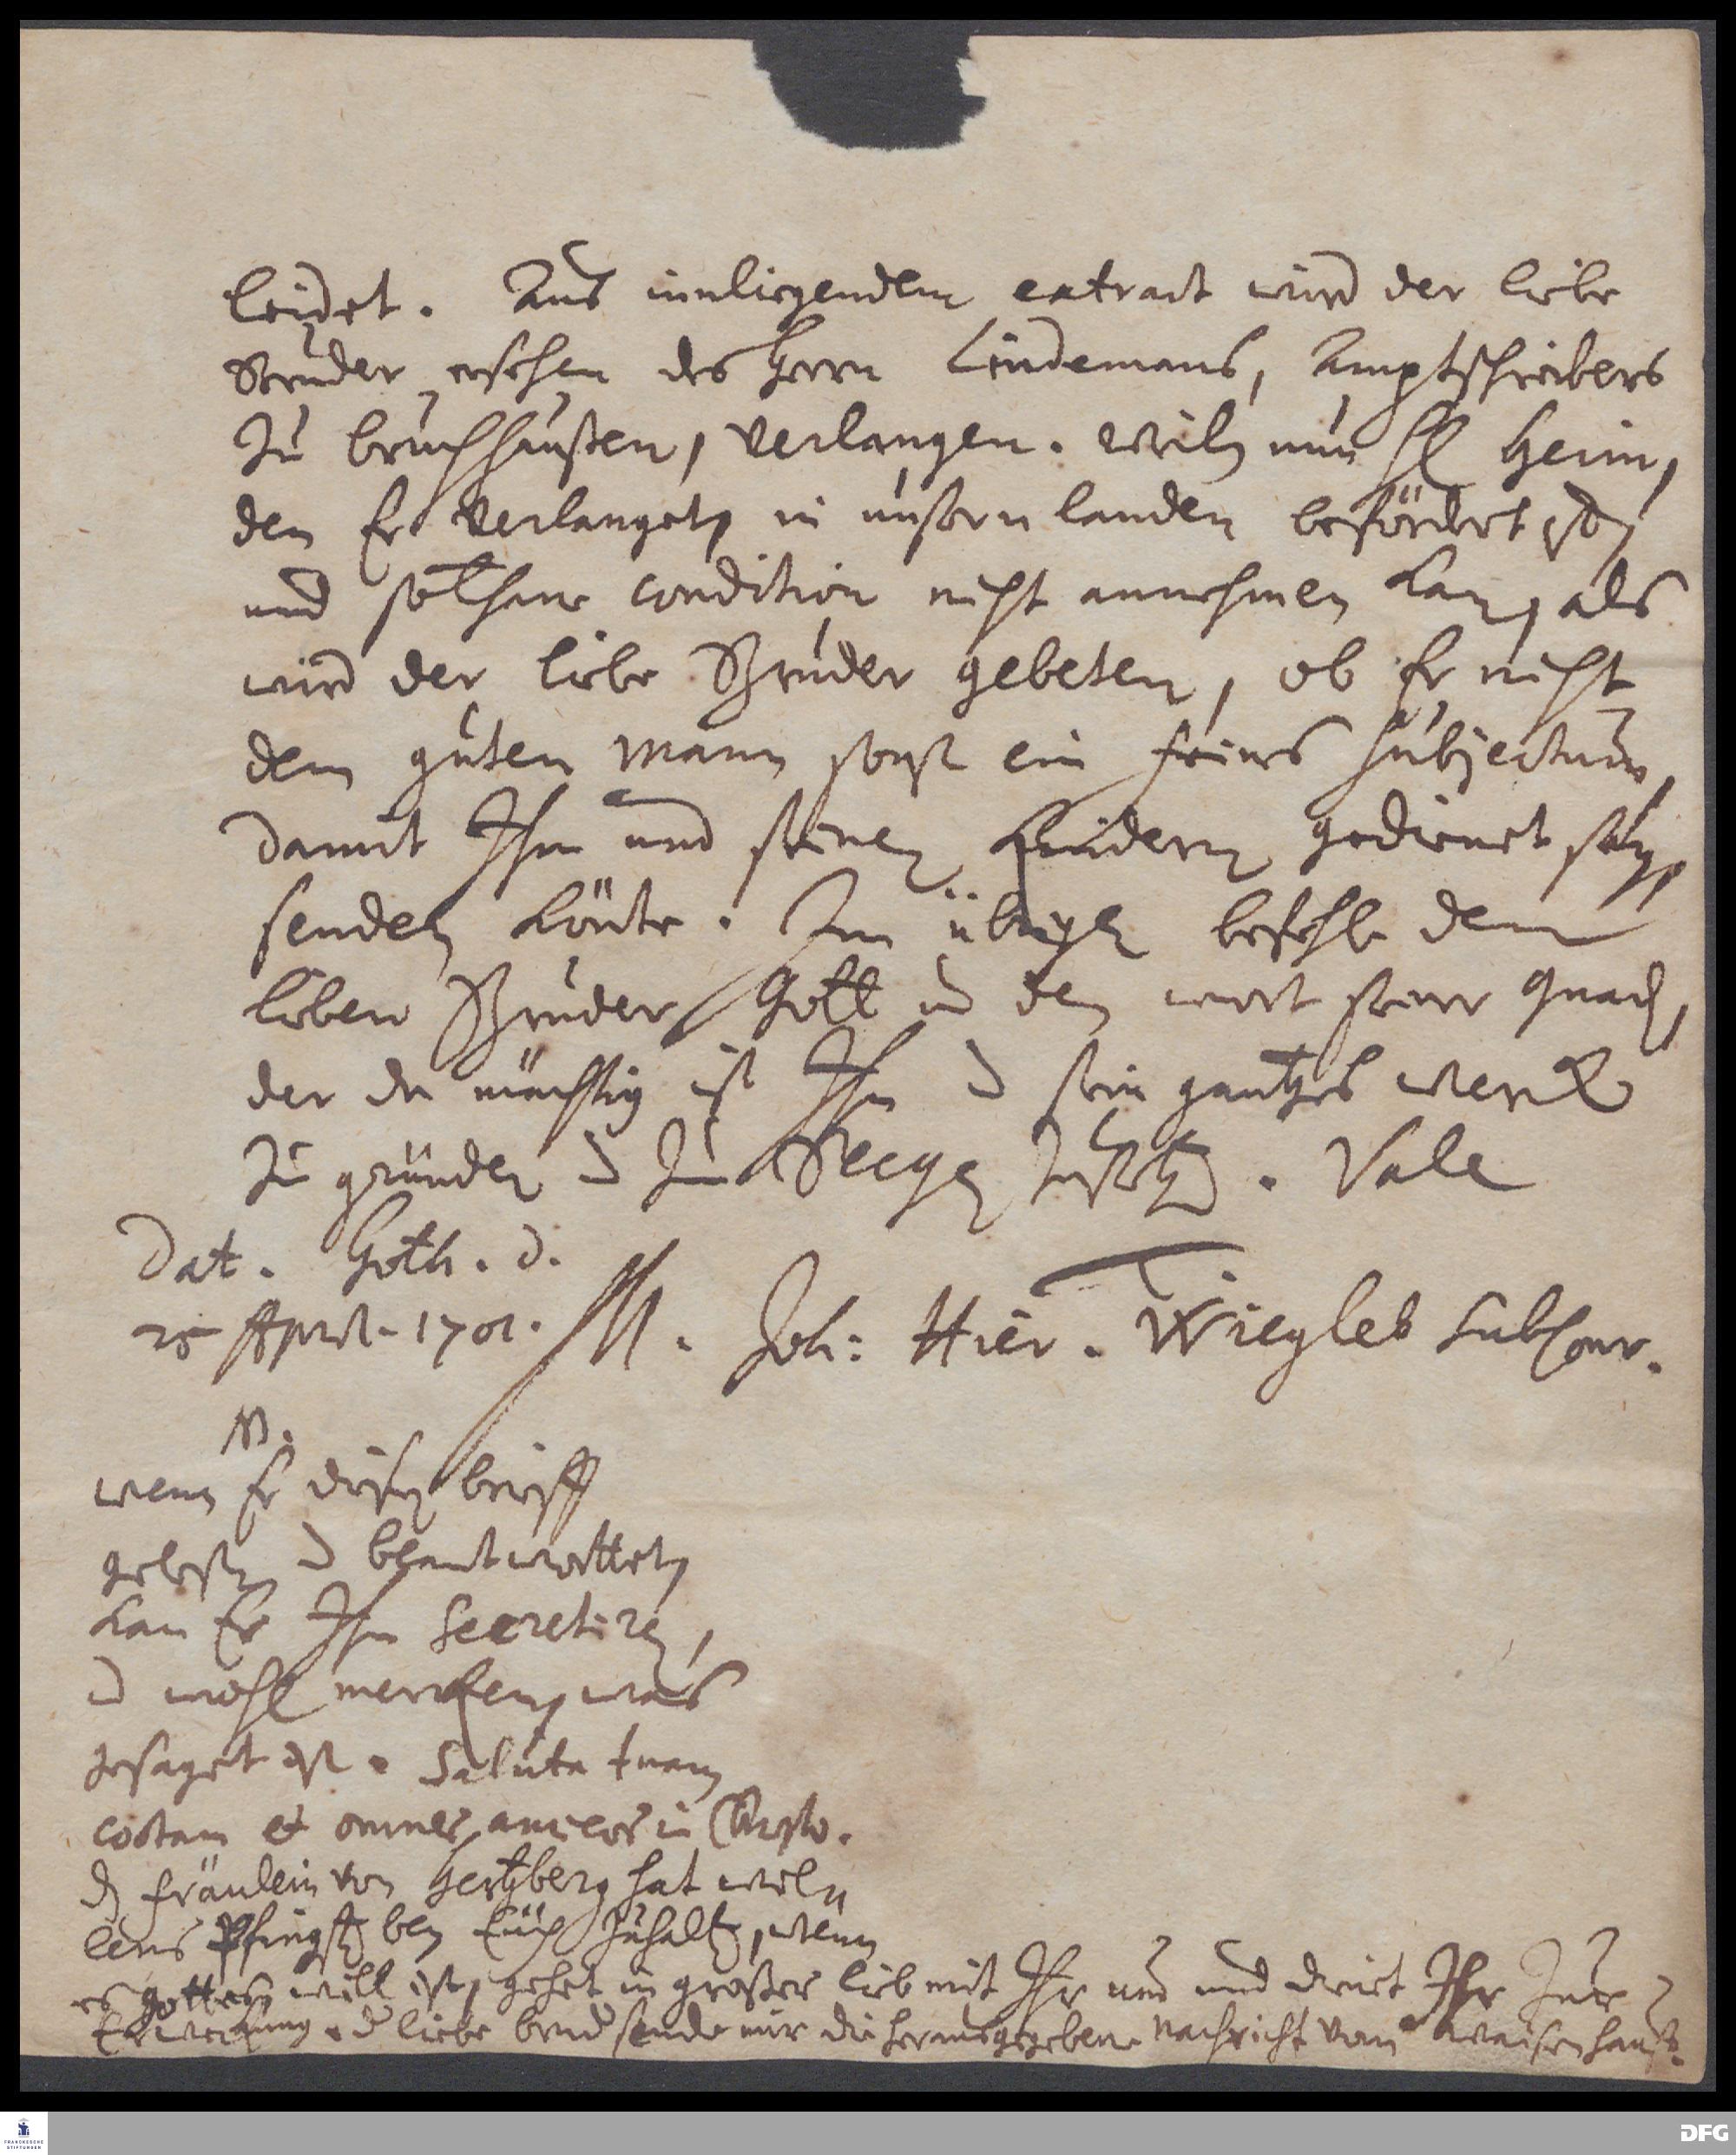 leidet. Aus innliegendem extract wird der liebe
Bruder ersehen des Herrn Lindemans, Amptschreibers
zu bruchhaußen, verlangen. Weiln nun H Heim,
den Er verlanget in unsern landen befördert ist
und solchane condition nicht annehmen kan, als
wird der liebe Bruder gebeten, ob Er nicht
dem guten Mann sonst ein feines subjectum,
damit Ihm und seinen Kindern gedienet sey,
senden könte. Im übrigen befehle dem
lieben Bruder Gott u dem wort seiner Gnade,
der da mächtig ist Ihn u sein gantzes werck
zu gründen u zum Seegen zusetzen. Vale
Dat. Goth. d.
25 April. 1701. M. Joh: Hier. Wiegleb SubConr.
wenn Er diesen brieff
gelesen u beantwortet
kan Er Ihn secretiren,
u wohl mercken, was
gesaget ist. Saluta tuam
costam et omnes amicos in Christo.
fräulein von Hertzberg hat
Pfingsten bey Euch zuhalten, wenn
es Gottes will ist, gehet in großer lieb mit Ihr um und dienet Ihr zur
Erweckung. d liebe brud sende mir die herausgegebene nachricht vom waisenhauß.
FRANCKESCHE STIFTUNGEN
DFG